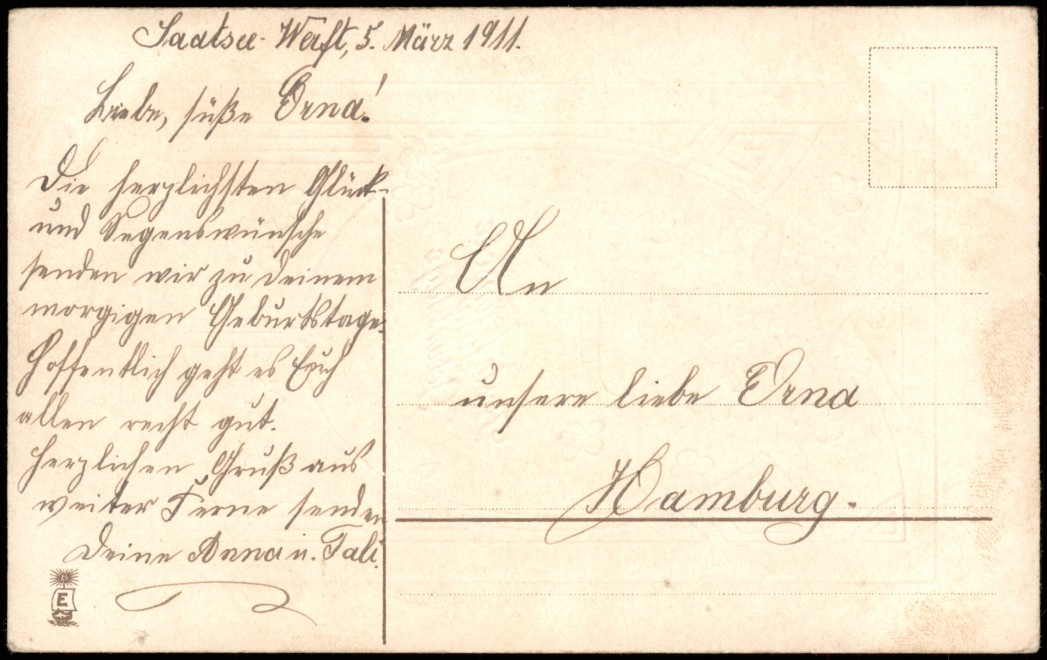 Saatsee-Werft, 5. März 1911.
Liebe, süße Erna!
Die herzlichsten Glück-
und Segenswünsche
senden wir zu Deinem
morgigen Geburtstage.
Hoffentlich geht es Euch
allen recht gut.
Herzlichen Gruß aus
weiter Ferne senden
Deine Anna u. Tali.
E
An
unsere liebe Erna
Hamburg.